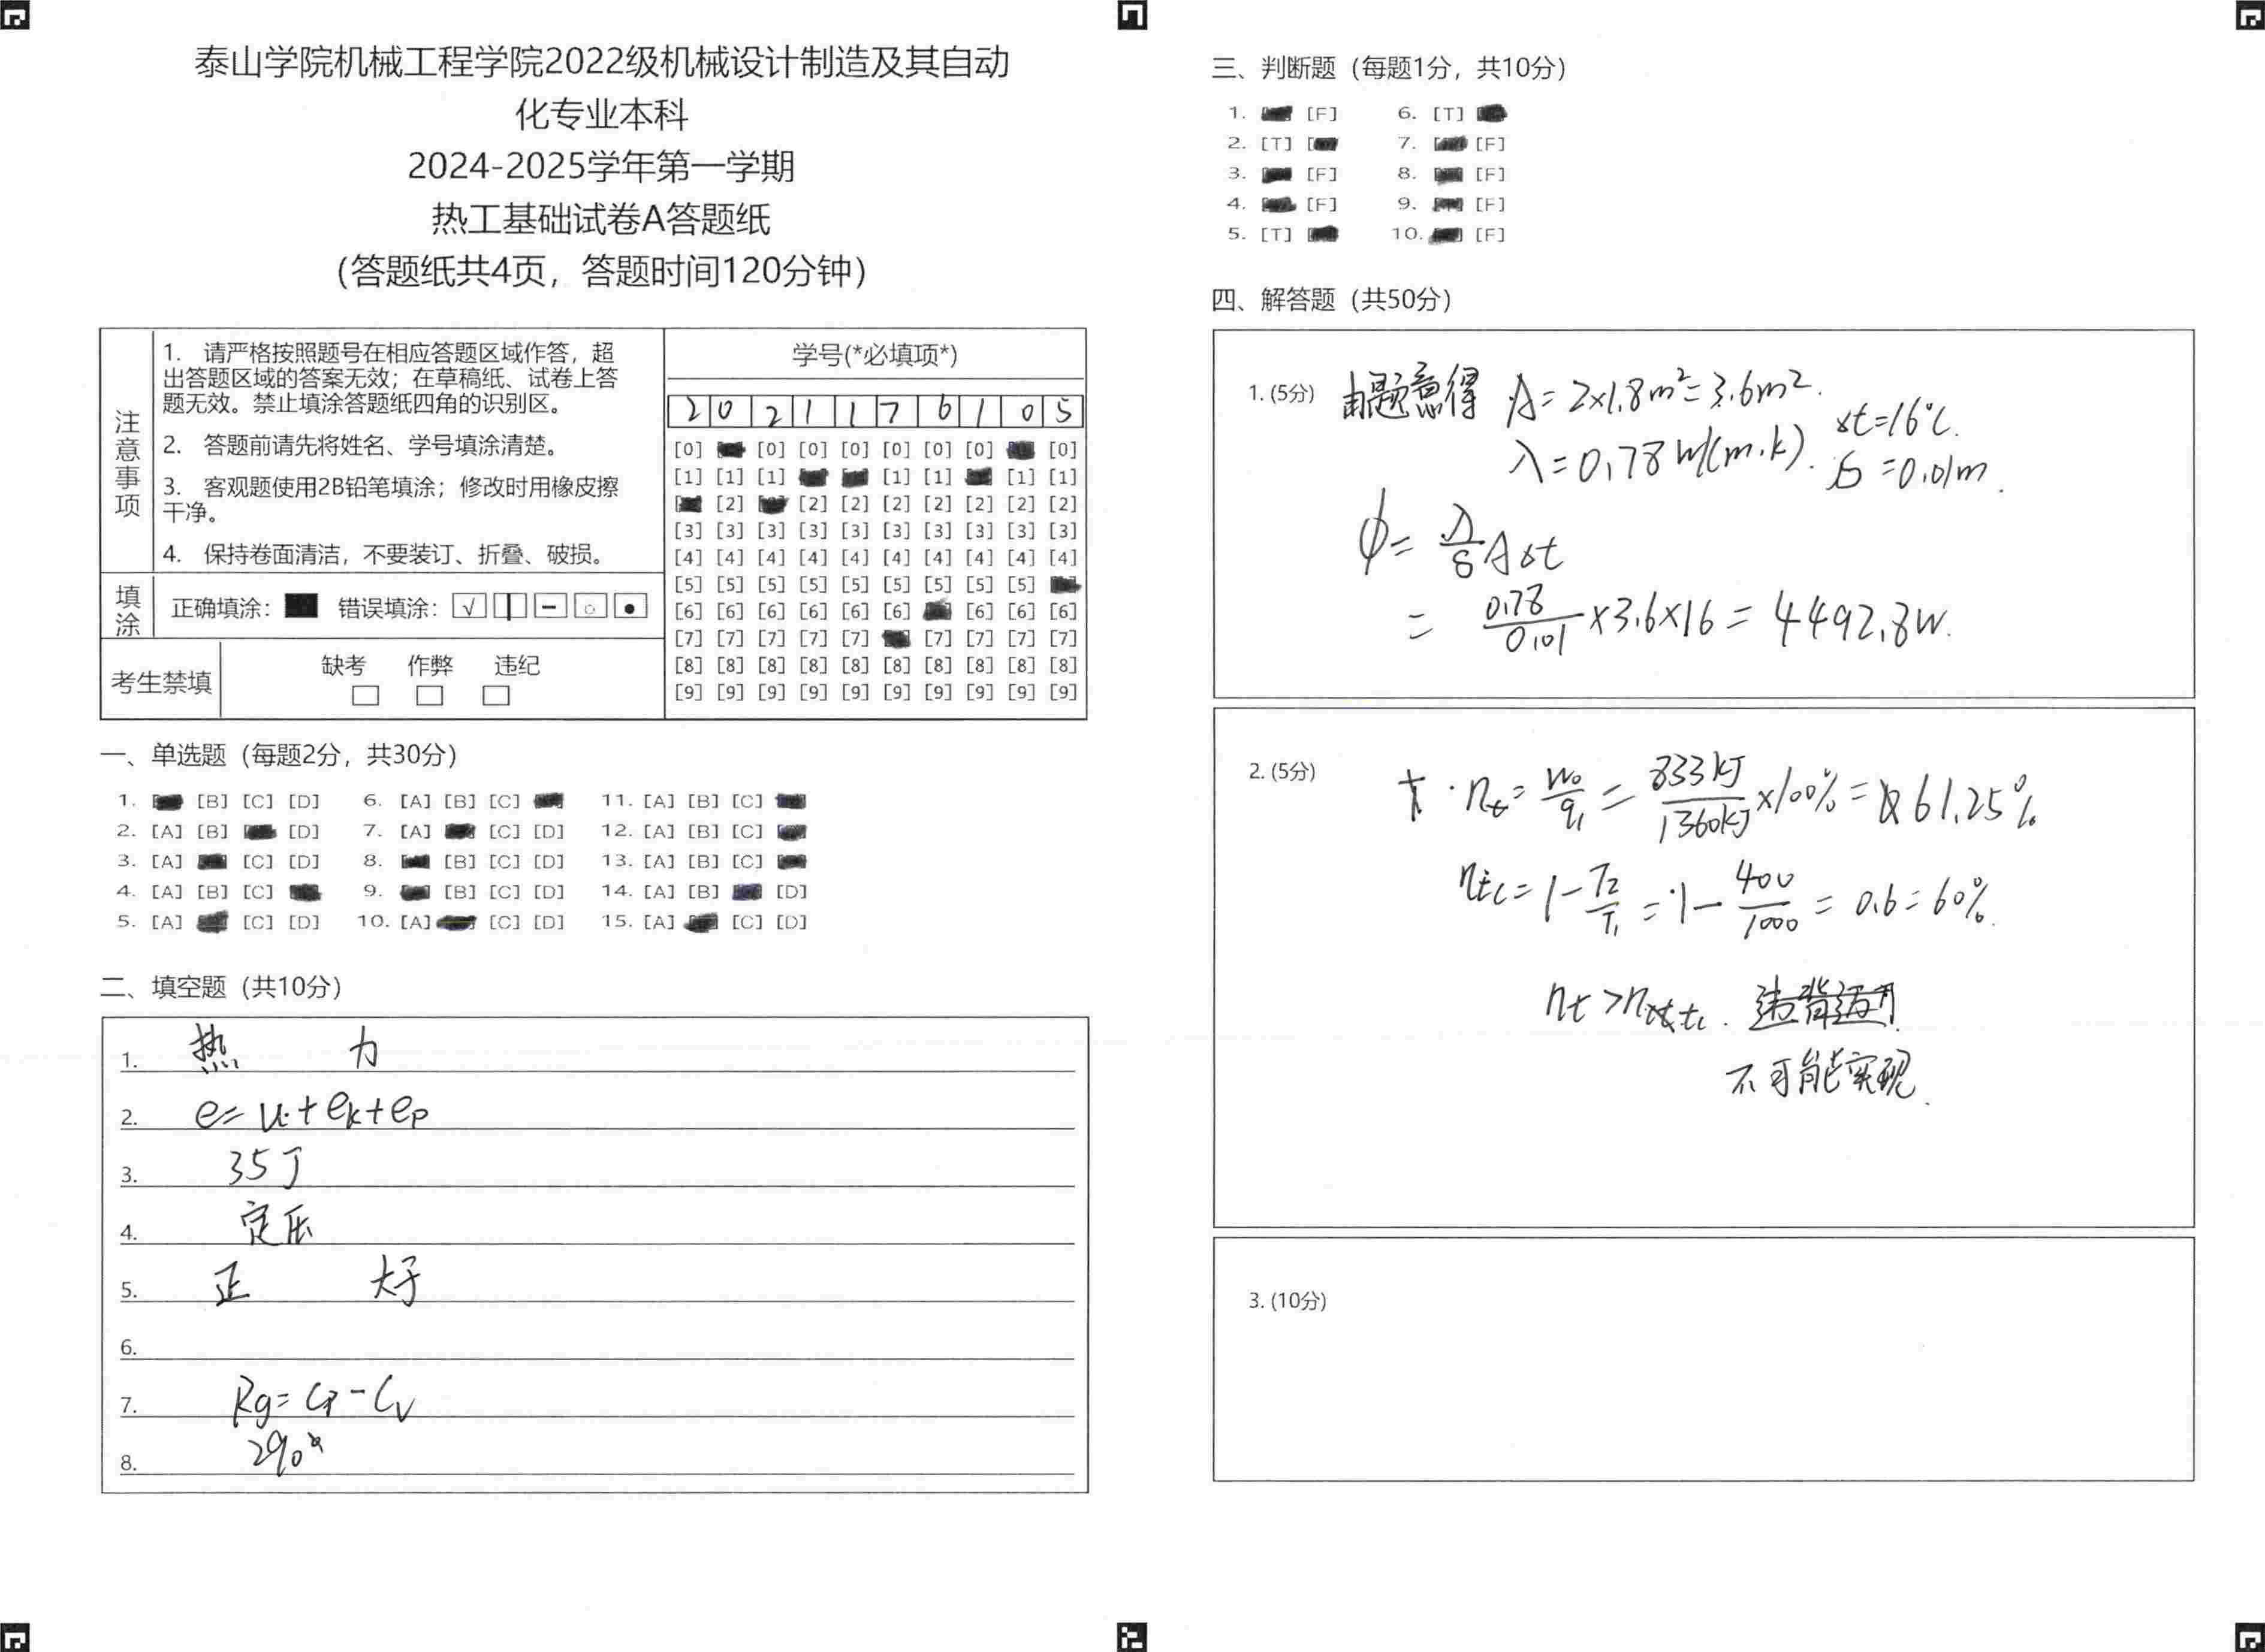 泰山学院机械工程学院2022级机械设计制造及其自动
化专业本科
2024-2025学年第一学期
热工基础试卷A答题纸
（答题纸共4页，答题时间120分钟）
注意事项
1. 请严格按照题号在相应答题区域作答，超
出答题区域的答案无效；在草稿纸、试卷上答
题无效。禁止填涂答题纸四角的识别区。
2. 答题前请先将姓名、学号填涂清楚。
3. 客观题使用2B铅笔填涂；修改时用橡皮擦
干净。
4. 保持卷面清洁，不要装订、折叠、破损。
填涂
正确填涂： 错误填涂：
考生禁填
缺考 作弊 违纪
学号(*必填项*)
2 0 2 1 1 7 6 1 0 5
[0] [0] [0] [0] [0] [0] [0] [0]
[1] [1] [1] [1] [1] [1] [1]
[2] [2] [2] [2] [2] [2] [2] [2]
[3] [3] [3] [3] [3] [3] [3] [3] [3] [3]
[4] [4] [4] [4] [4] [4] [4] [4] [4] [4]
[5] [5] [5] [5] [5] [5] [5] [5] [5]
[6] [6] [6] [6] [6] [6] [6] [6] [6]
[7] [7] [7] [7] [7] [7] [7] [7] [7]
[8] [8] [8] [8] [8] [8] [8] [8] [8] [8]
[9] [9] [9] [9] [9] [9] [9] [9] [9] [9]
一、单选题（每题2分，共30分）
1. [B] [C] [D] 6. [A] [B] [C] 11. [A] [B] [C]
2. [A] [B] [D] 7. [A] [C] [D] 12. [A] [B] [C]
3. [A] [C] [D] 8. [B] [C] [D] 13. [A] [B] [C]
4. [A] [B] [C] 9. [B] [C] [D] 14. [A] [B] [D]
5. [A] [C] [D] 10. [A] [C] [D] 15. [A] [C] [D]
二、填空题（共10分）
1. 热 力
2. e=u+ek+ep
3. 35J
4. 定压
5. 正 大于
6.
7. Rg=Cp-Cv
8. 290
三、判断题（每题1分，共10分）
1. [F] 6. [T]
2. [T] 7. [F]
3. [F] 8. [F]
4. [F] 9. [F]
5. [T] 10. [F]
四、解答题（共50分）
1. (5分) 由题意得 A=2×1.8m²=3.6m². Δt=16℃.
λ=0.78W/(m.k). δ=0.01m.
ϕ=λ/δ AΔt
=0.78/0.01×3.6×16=4492.8W.
2. (5分) ηt=W0/q1=833kJ/1360kJ×100%=61.25%
ηtc=1-T2/T1=1-400/1000=0.6=60%.
ηt>ηtc.
不可能实现.
3. (10分)